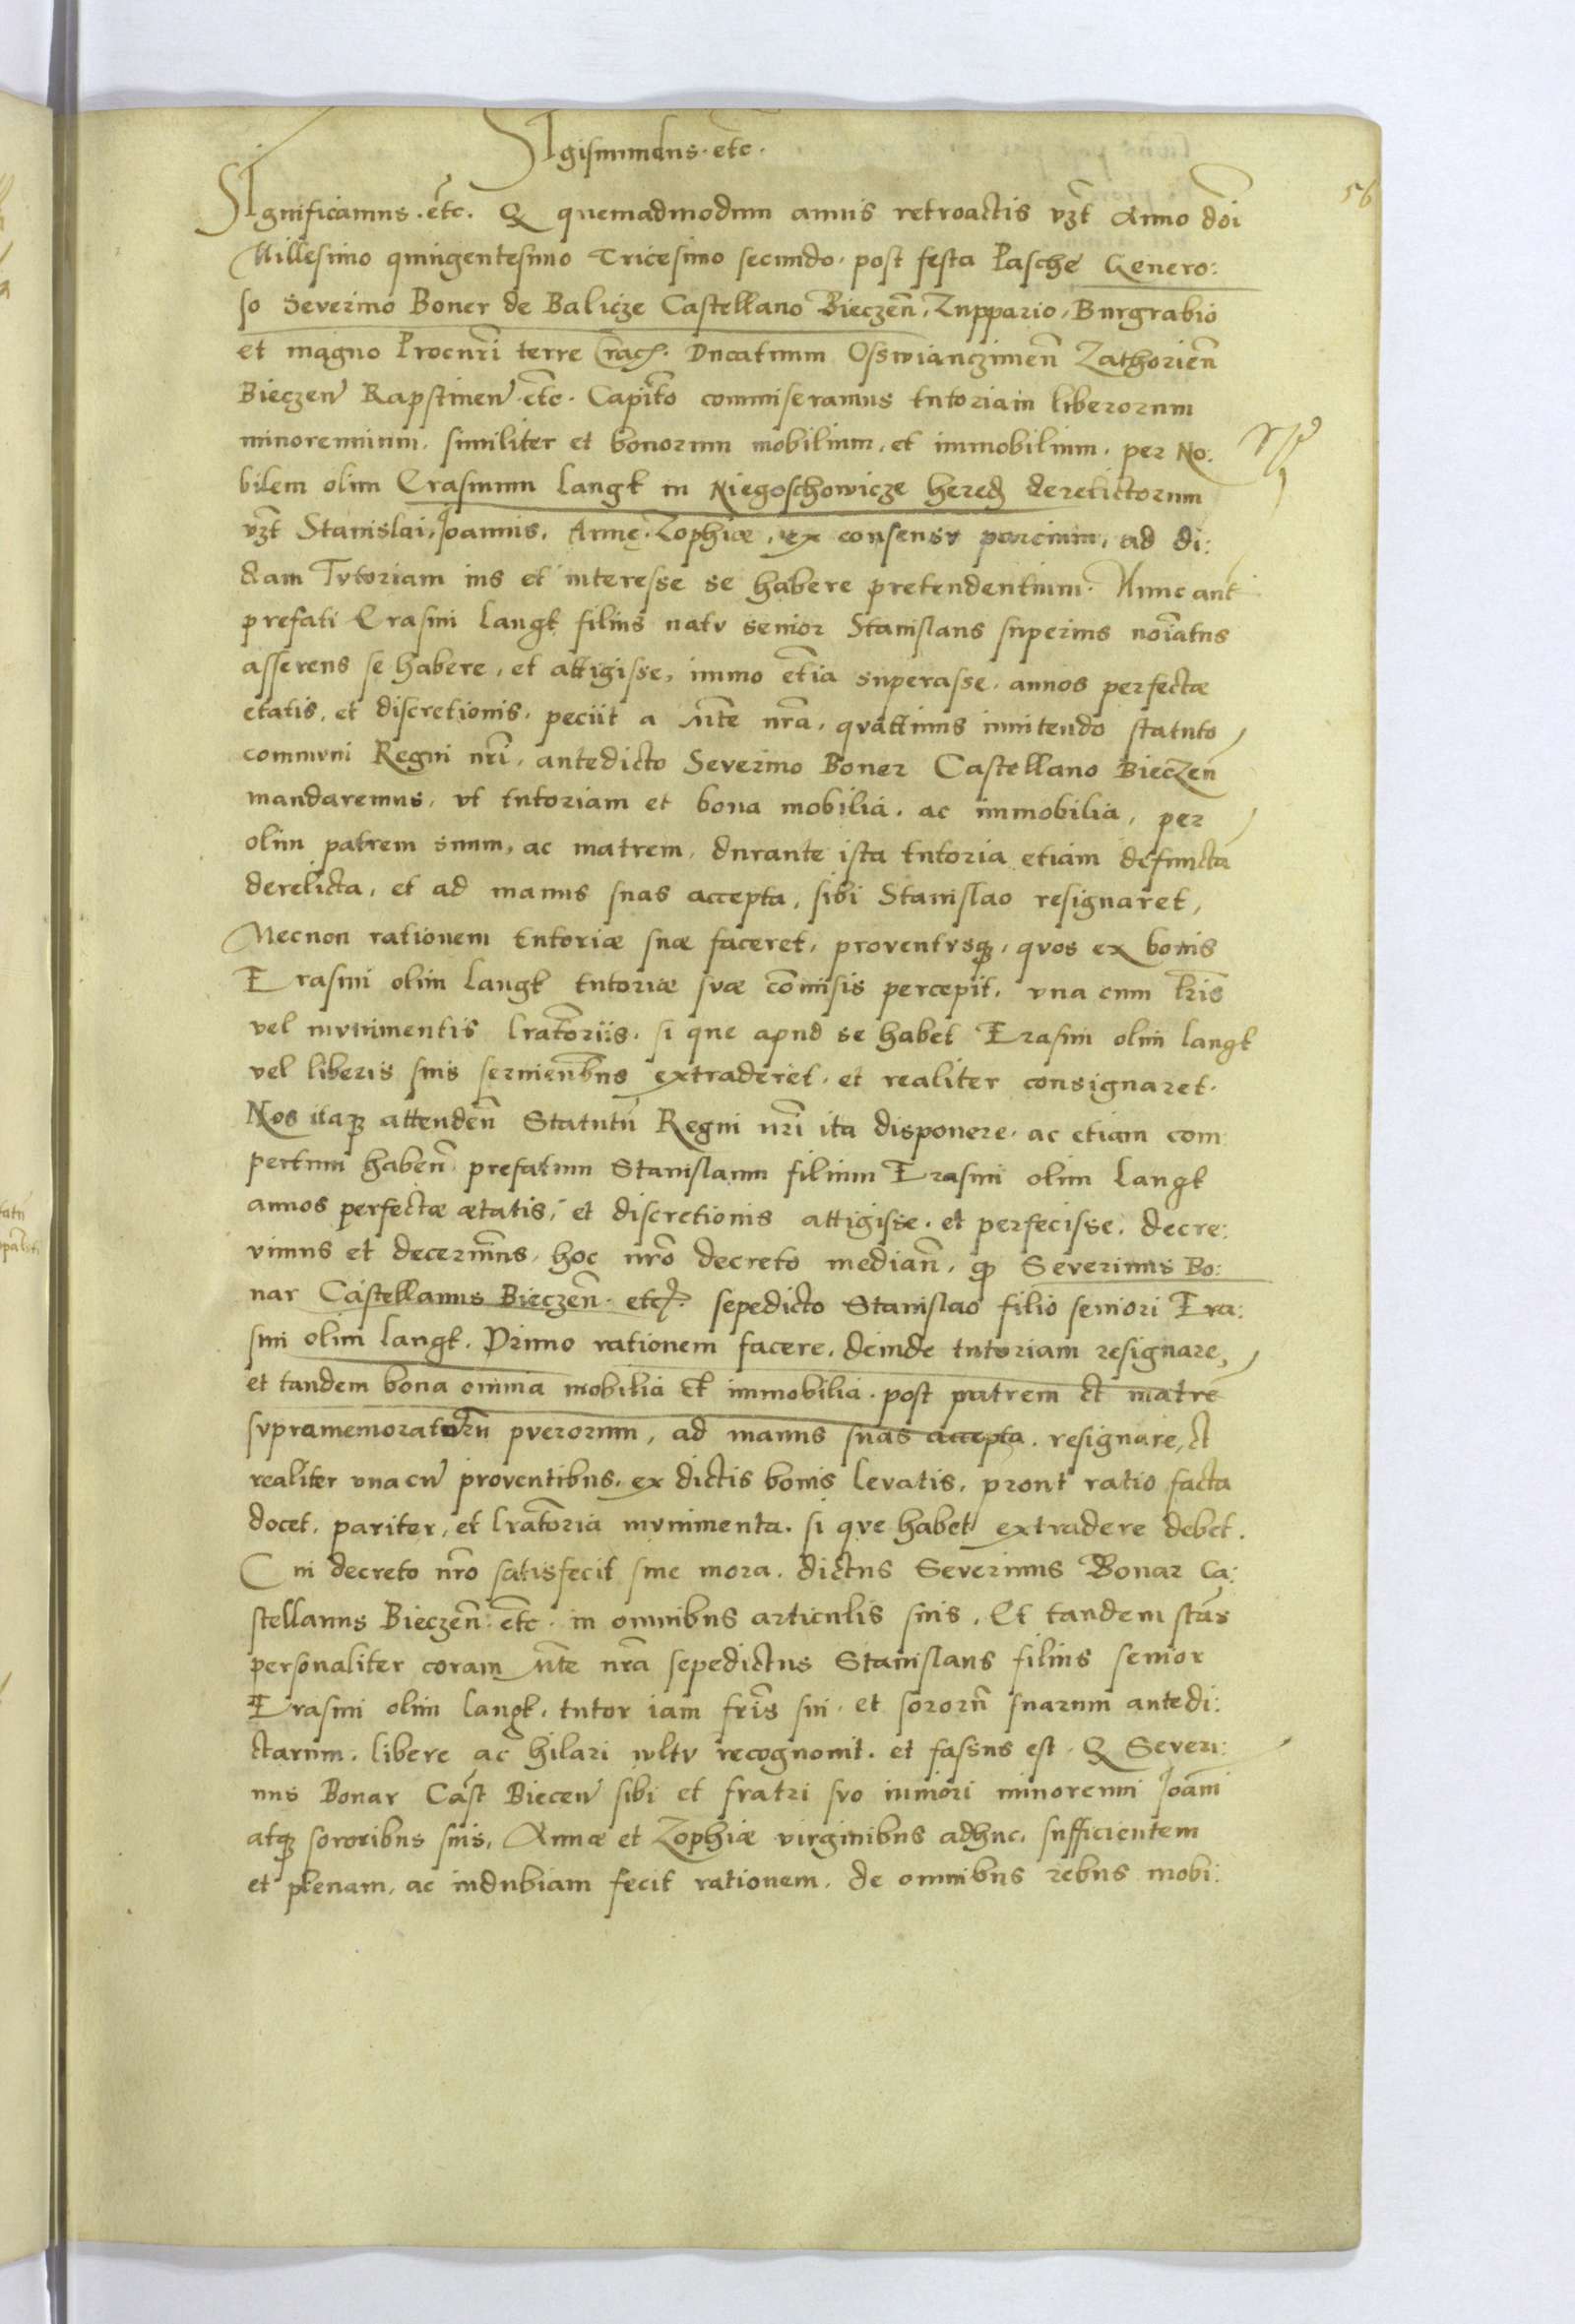 SIgismundus. etc.
56
SIgnificamus. etc. Q quemadmodum annis retroactis vzt Anno doi
Millesimo quingentesimo Tricesimo secundo. post festa Pasche Genero:
so Severino Boner de Balicze Castellano Bieczen, Zuppario, Burgrabio
et magno Procuri terre Crac. Ducatuum Osswianczimen Zathorien
Bieczen Rapstinen etc. Capito commiseramus tutoriam liberorum
minorennium. similiter et bonorum mobilium, et immobilium. per No:
bilem olim Erasmum Langk in Niegoschowicze hered derelictorum
vzt Stanislai, Joannis, Annę, Zophiæ, ex consensv parcium, ad di:
ctam Tvtoriam ius et interesse se habere pretendentium. Nunc aut
prefati Erasmi Langk filius natv senior Stanislaus superius noiatus
asserens se habere, et attigisse, immo etia superasse. annos perfectæ
etatis, et discretionis. peciit a Mte nra, qvattinus innitendo statuto
commvni Regni nri, antedicto Severino Boner Castellano Bieczen
mandaremus, vt tutoriam et bona mobilia. ac immobilia, per
olim patrem suum, ac matrem, durante ista tutoria etiam defuncta
derelicta, et ad manus suas accepta, sibi Stanislao resignaret,
Necnon rationem tutoriæ suæ faceret, proventvsq, qvos ex bonis
Erasmi olim Langk tutoriæ svæ comisis percepit, vna cum lris
vel mvnimentis lratoriis. si que apud se habet Erasmi olim Langk
vel liberis suis servientbus extraderet. et realiter consignaret.
Nos itaq attenden Statutu Regni nri ita disponere. ac etiam com
pertum haben prefatum Stanislaum filium Erasmi olim Langk
annos perfectæ ætatis, et discretionis attigisse. et perfecisse. decre:
vimus et decernimus, hoc nro decreto median, q Severinus Bo:
nar Castellanus Bieczen. etc. sepedicto Stanislao filio seniori Era:
smi olim Langk. Primo rationem facere, deinde tutoriam resignare,
et tandem bona omnia mobilia et immobilia. post patrem et matre
svpramemoratoru pverorum, ad manus suas accepta. resignare, et
realiter vna cu proventibus, ex dictis bonis levatis, prout ratio facta
docet, pariter, et lratoria mvnimenta. si qve habet extradere debet.
Cui decreto nro satisfecit sine mora. dictus Severinus Bonar Ca:
stellanus Bieczen. etc. in omnibus articulis suis. Et tandem stas
personaliter coram Mte nra sepedictus Stanislaus filius senior
Erasmi olim Langk, tutor iam fris sui. et sororu suarum antedi:
ctarum. libere ac hilari wltv recognovit. et fassus est. Q Severi:
nus Bonar Cast Biecen sibi et fratri svo iuniori minorenni Joani
atq sororibus suis, Annæ et Zophiæ virginibus adhuc, sufficientem
et plenam, ac indubiam fecit rationem. de omnibus rebus mobi: